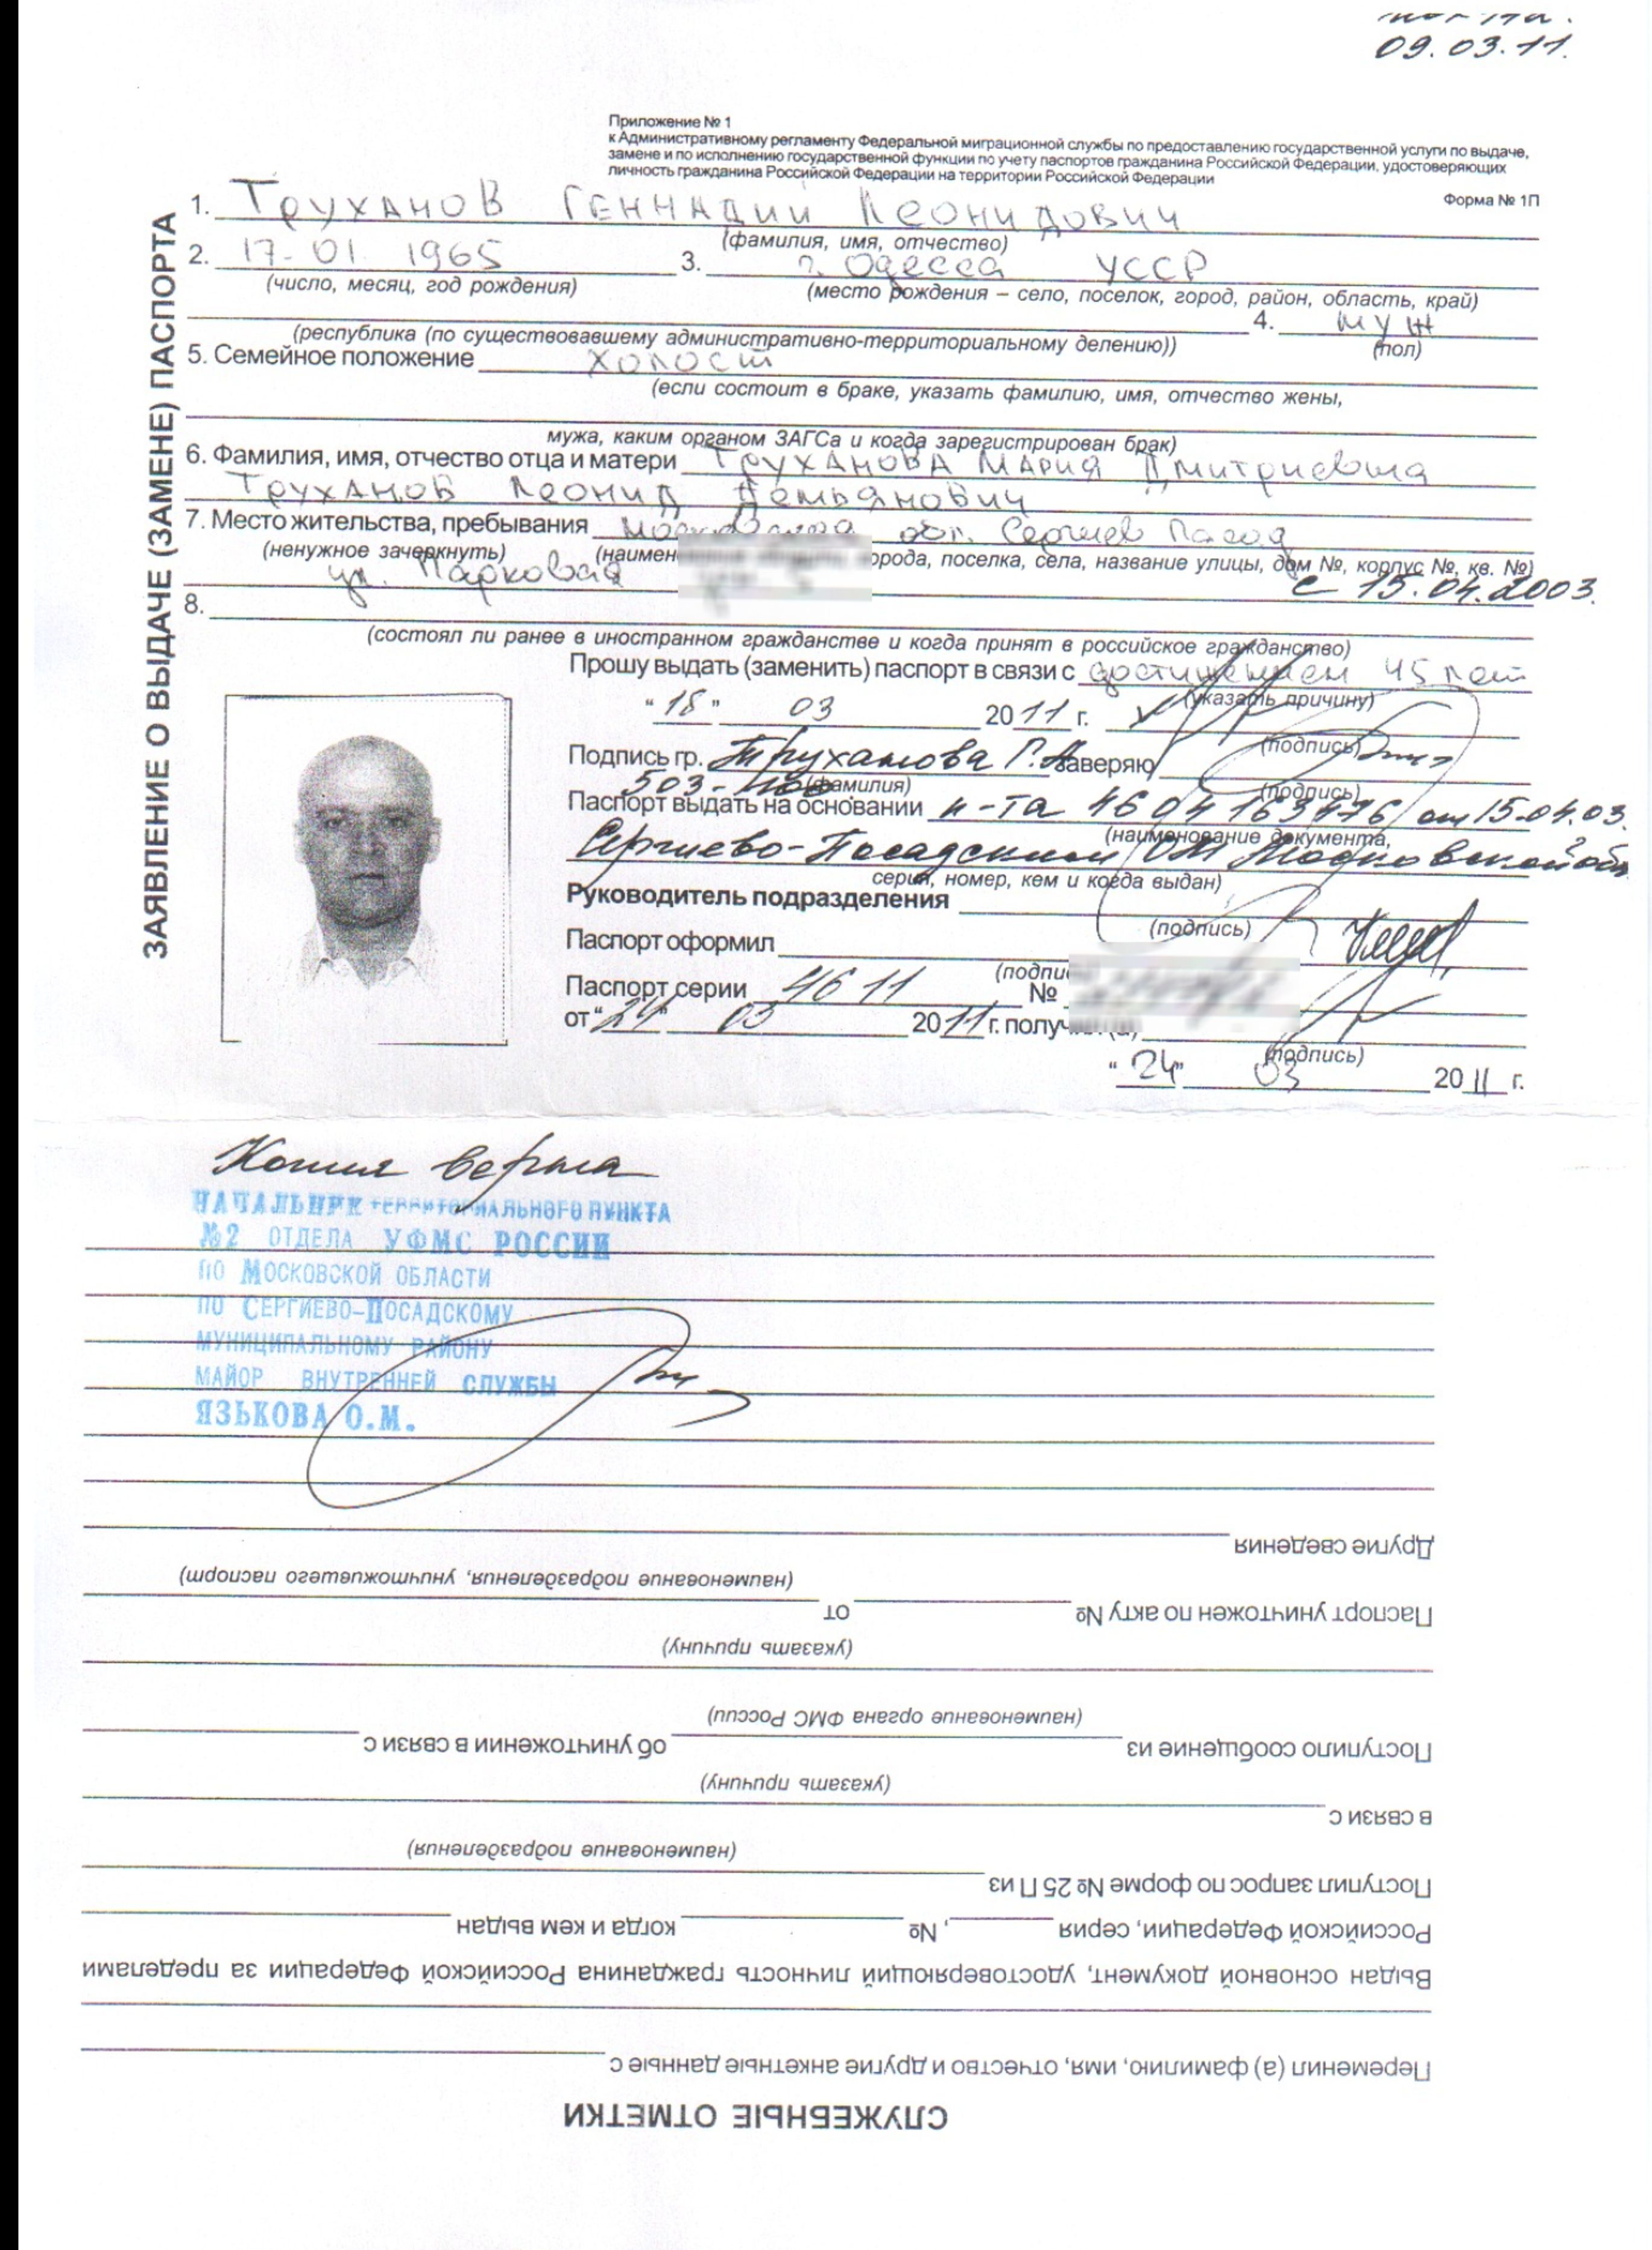 09.03.11.
Приложение № 1
к Административному регламенту Федеральной миграционной службы по предоставлению государственной услуги по выдаче,
замене и по исполнению государственной функции по учету паспортов гражданина Российской Федерации, удостоверяющих
личность гражданина Российской Федерации на территории Российской Федерации
Форма № 1П
ЗАЯВЛЕНИЕ О ВЫДАЧЕ (ЗАМЕНЕ) ПАСПОРТА
1. Труханов Геннадий Леонидович
(фамилия, имя, отчество)
2. 17.01 1965 3. г. Одесса УССР
(число, месяц, год рождения) (место рождения – село, поселок, город, район, область, край)
4. муж
(республика (по существовавшему административно-территориальному делению)) (пол)
5. Семейное положение холост
(если состоит в браке, указать фамилию, имя, отчество жены,
мужа, каким органом ЗАГСа и когда зарегистрирован брак)
6. Фамилия, имя, отчество отца и матери Труханова Мария Дмитриевна
Труханов Леонид Демьянович
7. Место жительства, пребывания Московская обл. Сергиев Пасад
(ненужное зачеркнуть) (наимен орода, поселка, села, название улицы, дом №, корпус №, кв. №)
ул. Парковая с 15.04.2003.
8.
(состоял ли ранее в иностранном гражданстве и когда принят в российское гражданство)
Прошу выдать (заменить) паспорт в связи с достижением 45 лет
(указать причину)
"18" 03 2011 г.
(подпись)
Подпись гр. Труханова Г.Л. заверяю
(фамилия) (подпись)
503-
Паспорт выдать на основании п-та 46 04 163476 от 15.04.03.
(наименование документа,
Сергиево-Посадским ОМ Московской обл
серия, номер, кем и когда выдан)
Руководитель подразделения
(подпись)
Паспорт оформил
(подпи
Паспорт серии 46 11 №
от "24" 03 2011 г. получ
(подпись)
"24" 03 2011 г.
Копия верна
НАЧАЛЬНИК ТЕРРИТОРИАЛЬНОГО ПУНКТА
№2 ОТДЕЛА УФМС РОССИИ
ПО МОСКОВСКОЙ ОБЛАСТИ
ПО СЕРГИЕВО-ПОСАДСКОМУ
МУНИЦИПАЛЬНОМУ РАЙОНУ
МАЙОР ВНУТРЕННЕЙ СЛУЖБЫ
ЯЗЬКОВА О.М.
СЛУЖЕБНЫЕ ОТМЕТКИ
Переменил (а) фамилию, имя, отчество и другие анкетные данные с
Выдан основной документ, удостоверяющий личность гражданина Российской Федерации за пределами
Российской Федерации, серия , № когда и кем выдан
Поступил запрос по форме № 25 П из
(наименование подразделения)
в связи с
(указать причину)
Поступило сообщение из об уничтожении в связи с
(наименование органа ФМС России)
(указать причину)
Паспорт уничтожен по акту № от
(наименование подразделения, уничтожившего паспорт)
Другие сведения